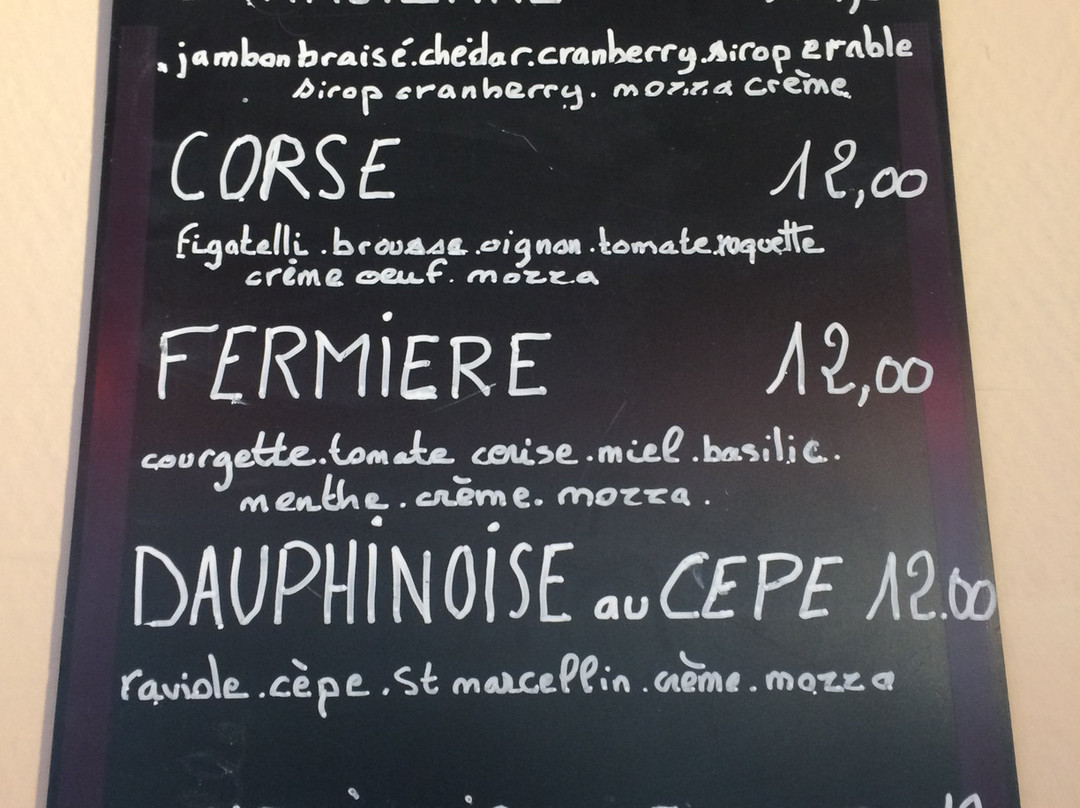 . jambon braisé.chedar.cranberry.sirop erable
sirop cranberry. mozza crème
CORSE 12,00
figatelli.brousse.oignon.tomate.roquette
crème oeuf. mozza
FERMIERE 12,00
courgette.tomate cerise.miel.basilic.
menthe.crème. mozza.
DAUPHINOISE au CEPE 12.00
raviole.cèpe.St marcellin.crème.mozza